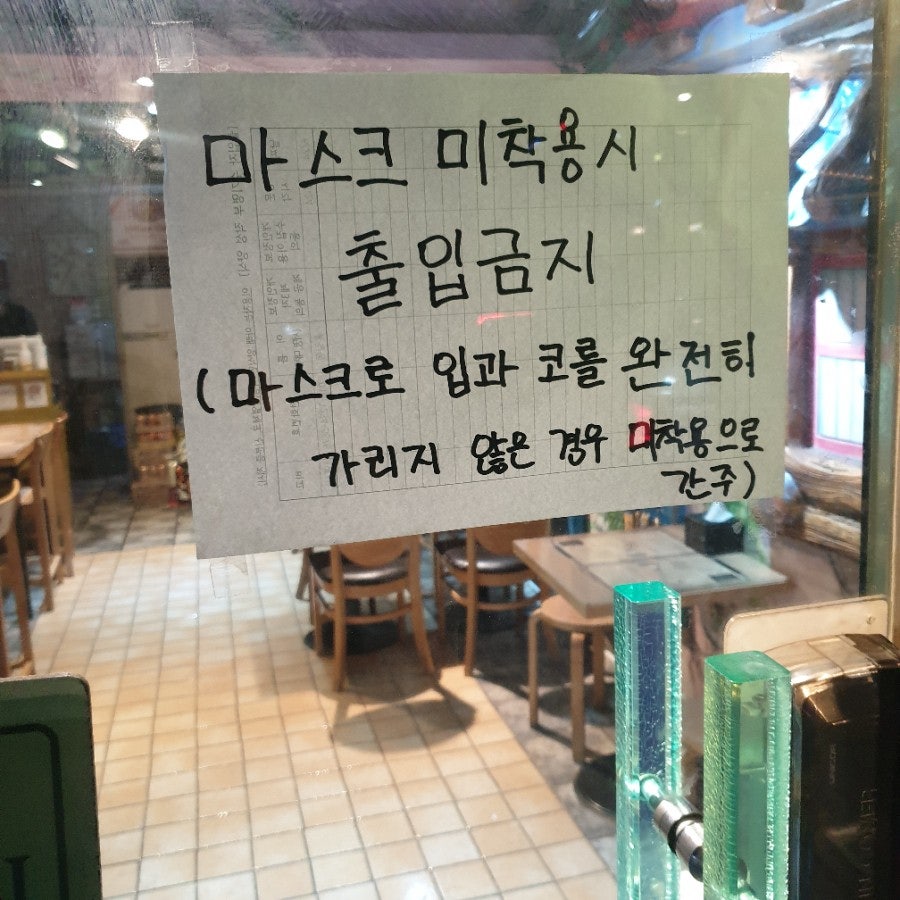 마스크 미착용시
출입금지
(마스크로 입과 코를 완전히
가리지 않은 경우 미착용으로
간주)